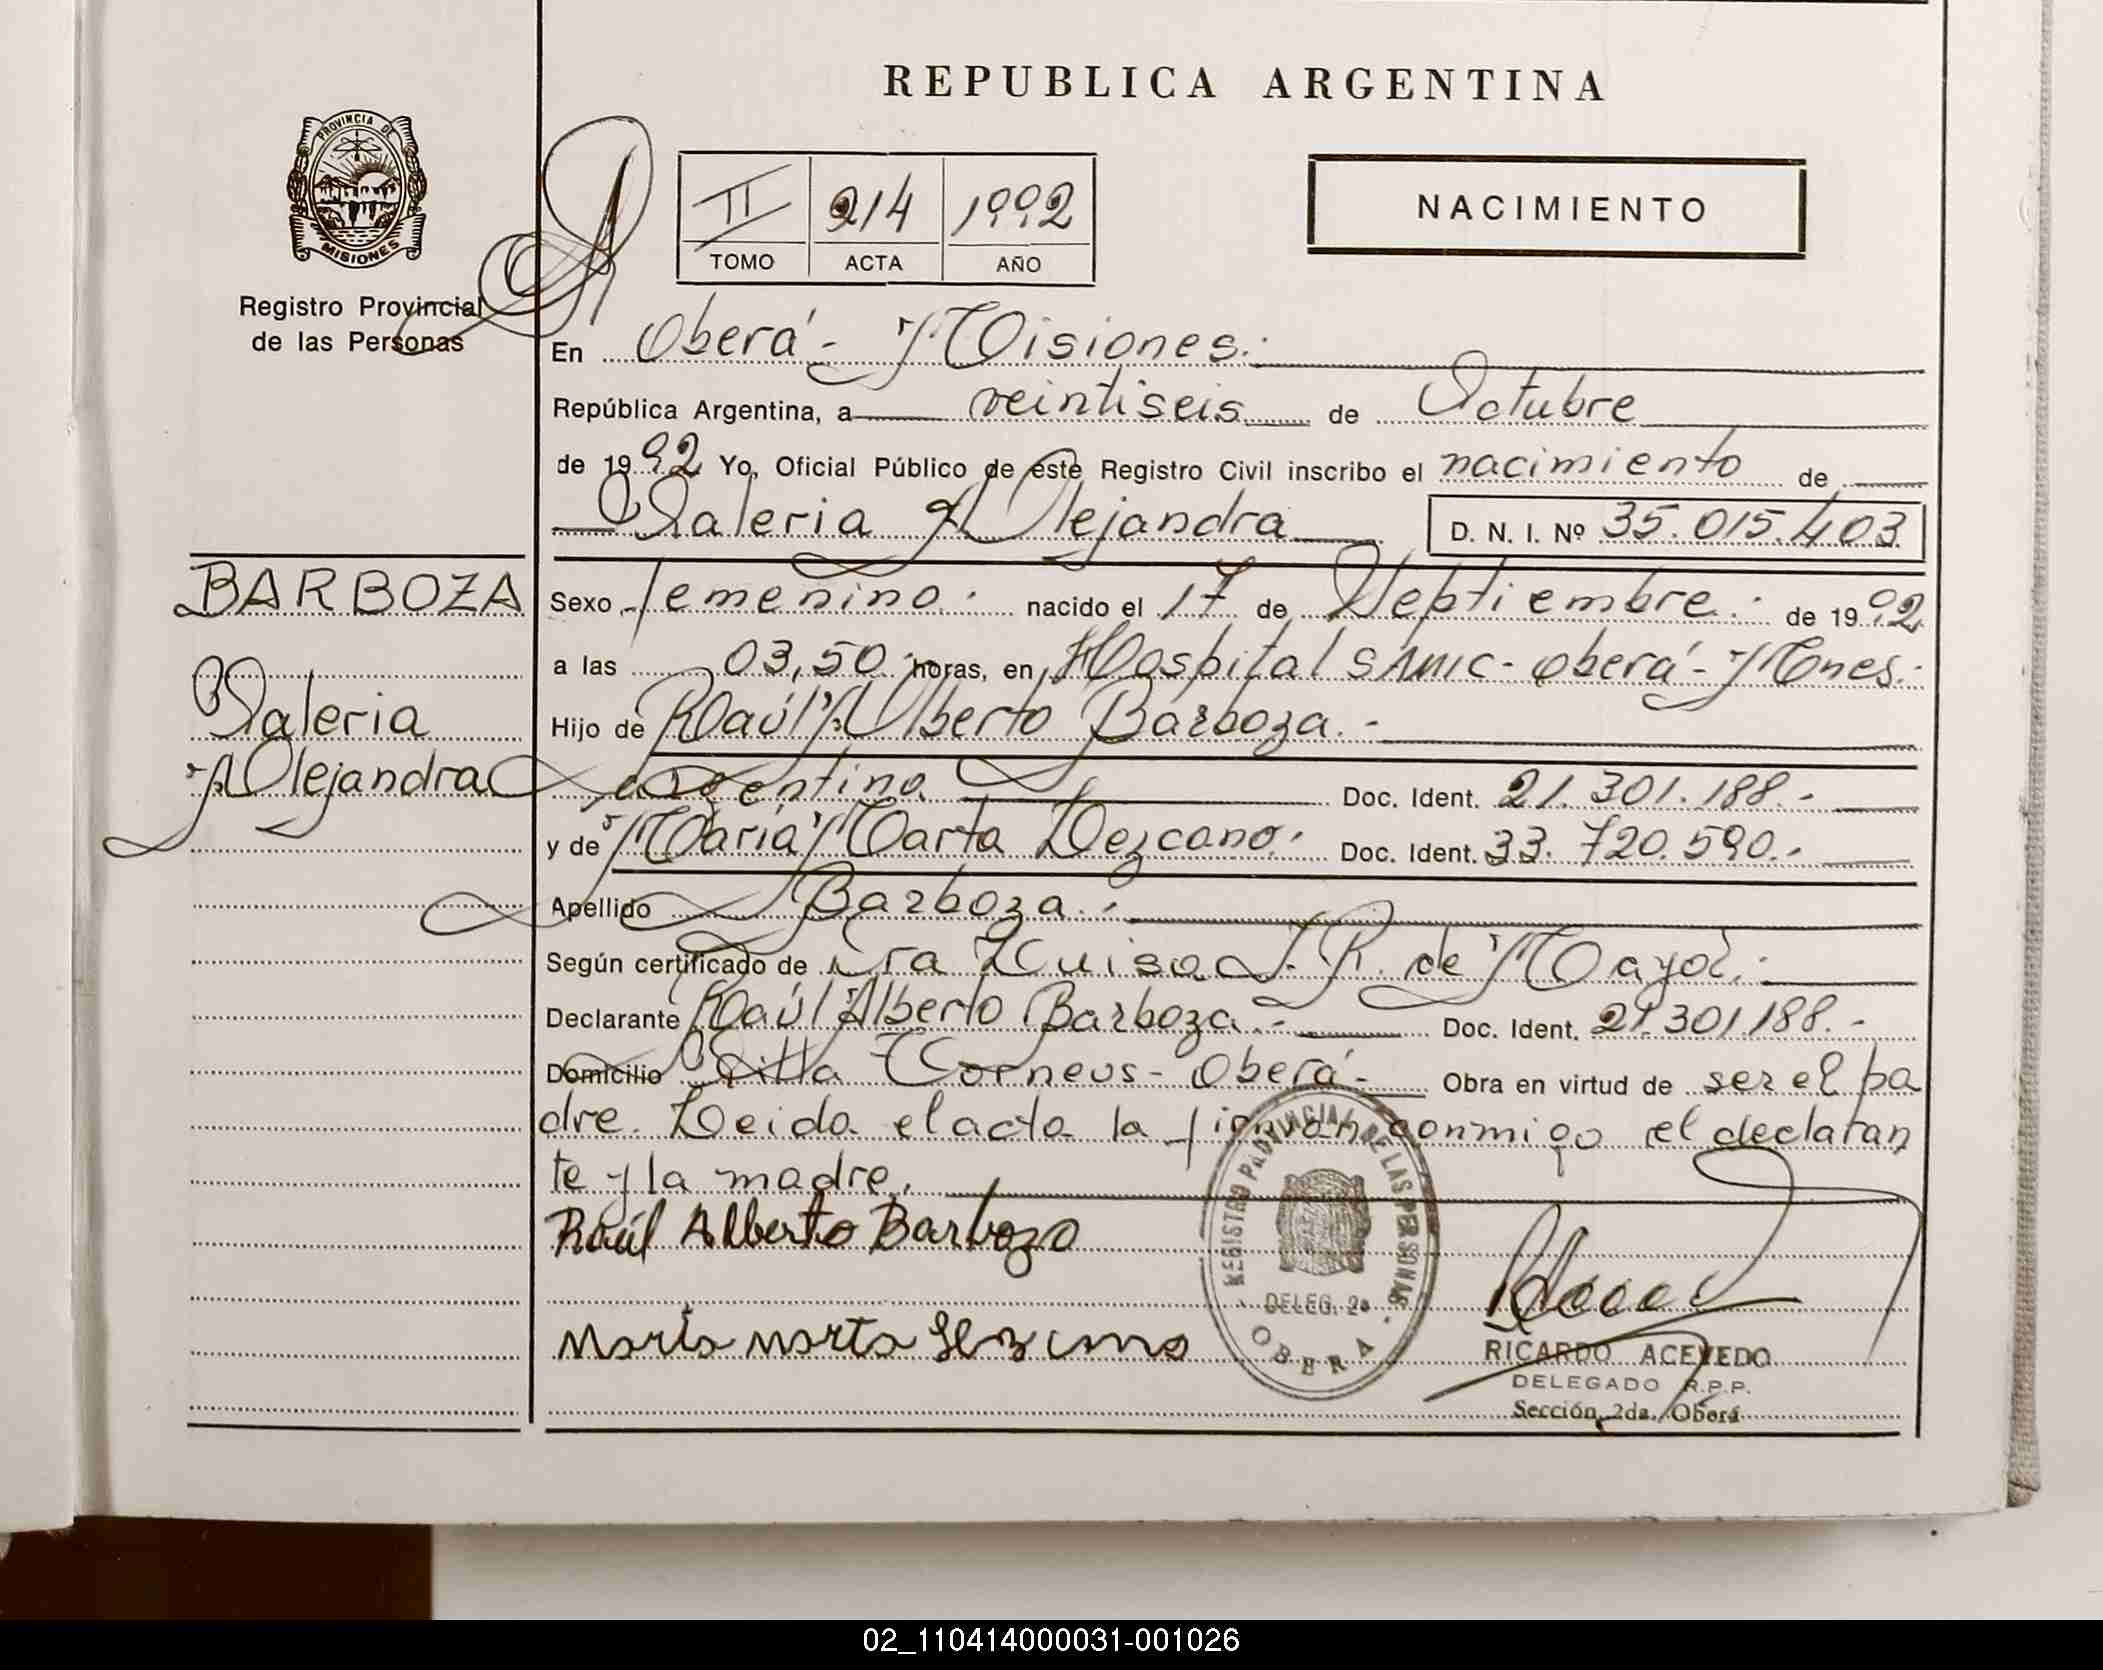 REPUBLICA ARGENTINA
PROVINCIA DE
MISIONES
Registro Provincial
de las Personas
II 214 1992
TOMO ACTA AÑO
NACIMIENTO
En Oberá - Misiones.
República Argentina, a veintiseis de Octubre
de 1992 Yo, Oficial Público de este Registro Civil inscribo el nacimiento de
Valeria Alejandra D. N. I. Nº 35.015.403
BARBOZA
Valeria
Alejandra
Sexo femenino. nacido el 17 de Septiembre. de 1992
a las 03,50. horas, en Hospital SAMIC - Oberá - Mnes.
Hijo de Raúl Alberto Barboza. -
argentino Doc. Ident. 21.301.188. -
y de María Marta Lezcano. Doc. Ident. 33.720.590. -
Apellido Barboza. -
Según certificado de Dra Luisa J. R. de Mayol. -
Declarante Raúl Alberto Barboza. - Doc. Ident. 21.301.188. -
Domicilio Villa Torneus - Oberá - Obra en virtud de ser el pa
dre. Leida el acta la firman conmigo el declaran
te y la madre.
Raúl Alberto Barboza
Maria Marta Lezcano
REGISTRO PROVINCIAL DE LAS PERSONAS
DELEG. 2a
OBERA
RICARDO ACEVEDO
DELEGADO R.P.P.
Sección 2da. Oberá
02_110414000031-001026